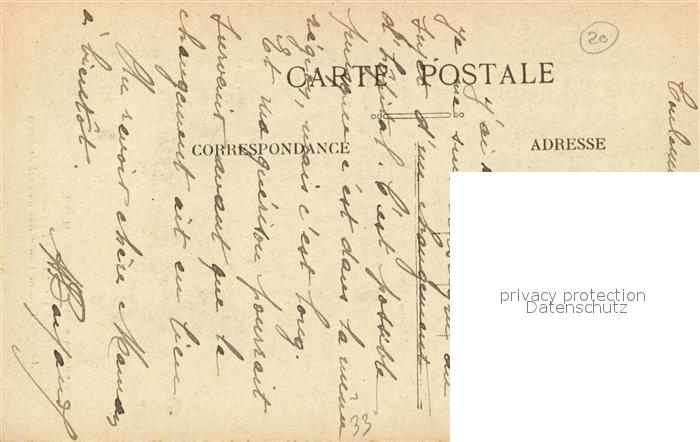 20
CARTE POSTALE
CORRESPONDANCE
ADRESSE
privacy protection
Datenschutz
j'ai
Je me suis
sujet d'un changement
d'hôpital. C'est possible
puisque c'est dans la même
région, mais c'est long.
Et ma guérison pourrait
survenir avant que le
changement ait eu lieu.
Au revoir chère Maman
à bientôt.
33